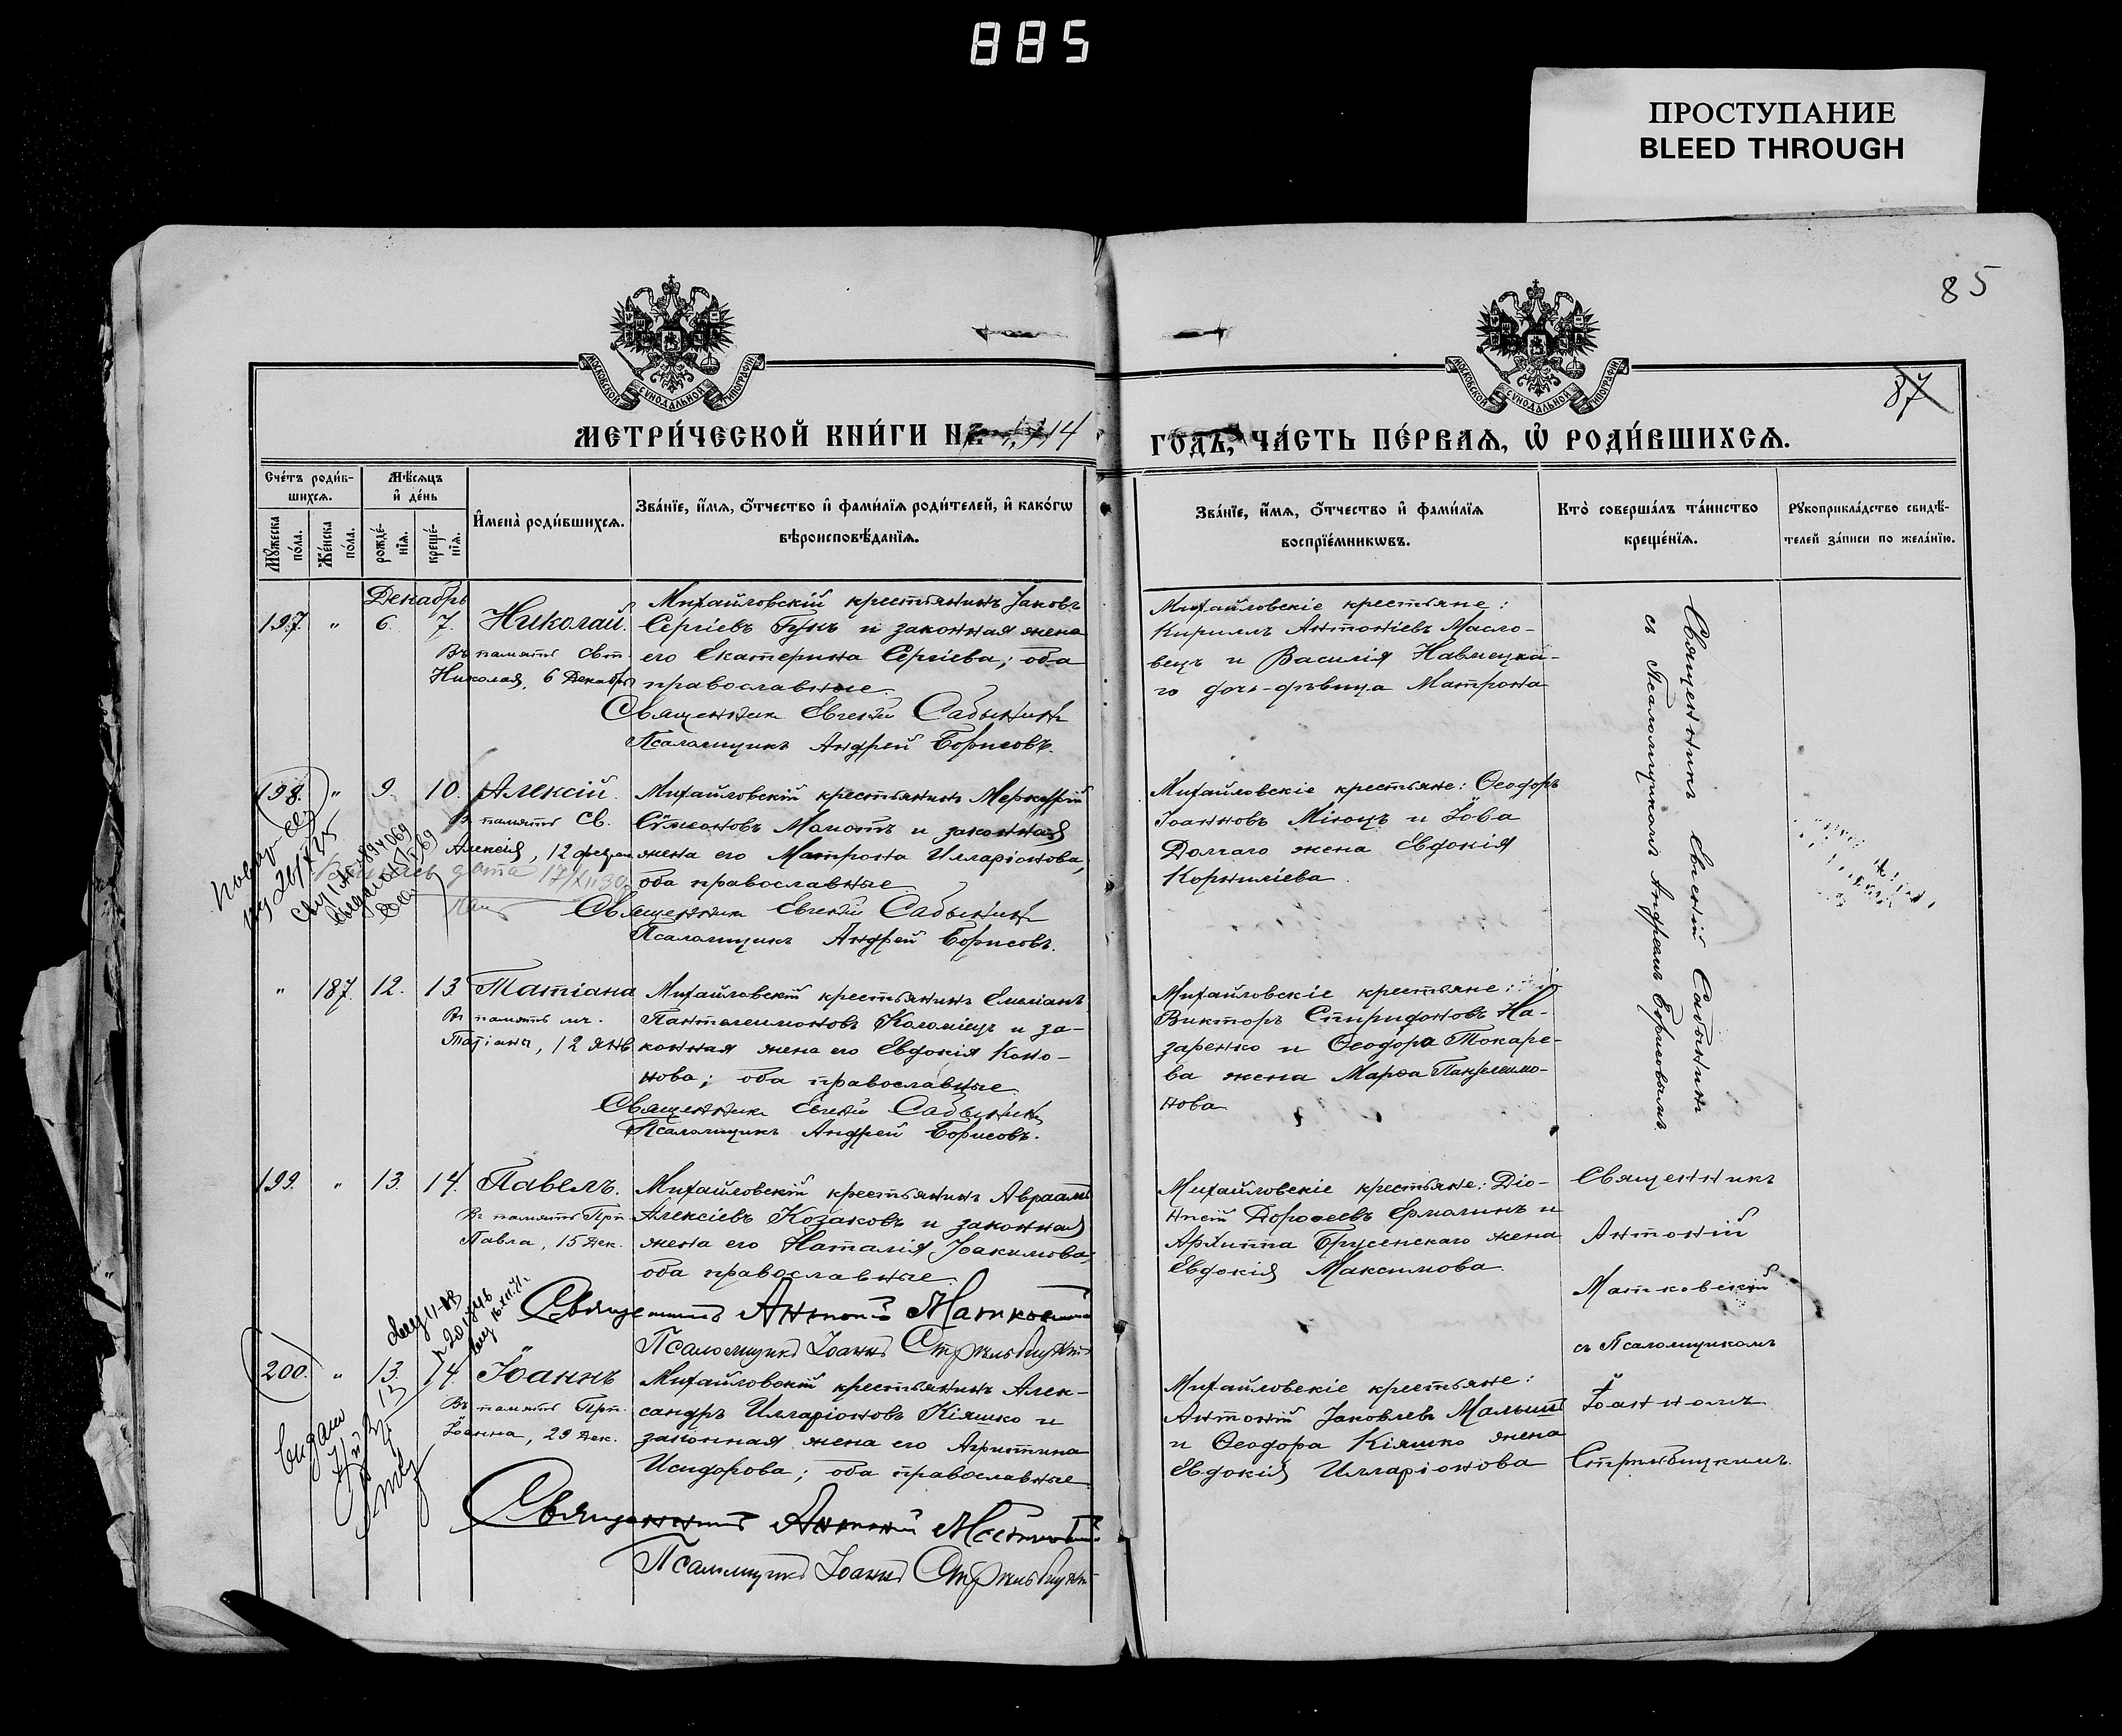 885
ПРОСТУПАНИЕ
BLEED THROUGH
85
87
МОСКОВСКОЙ СѴНОДАЛЬНОЙ ТИПОГРАФІИ
МОСКОВСКОЙ СѴНОДАЛЬНОЙ ТИПОГРАФІИ
МЕТРИ́ЧЕСКОЙ КНИ́ГИ НА 1914
ГО́ДЪ, ЧА́СТЬ ПЕ́РВАѦ, Ѡ҆ РОДИ́ВШИХСѦ.
Сче́тъ роди́в-
шихсѧ.
Мѣ́сѧцъ
и҆ де́нь
Мꙋ́жеска
по́ла.
Же́нска
по́ла.
рожде́-
нїѧ.
креще́-
нїѧ.
И҆мена̀ роди́вшихсѧ.
Зва́нїе, и҆́мѧ, ѻ҆́тчество и҆ фами́лїѧ роди́телей, и҆ како́гѡ
вѣроисповѣ́данїѧ.
Зва́нїе, и҆́мѧ, ѻ҆́тчество и҆ фами́лїѧ
воспрїе́мникѡвъ.
Кто̀ соверша́лъ та́инство
креще́нїѧ.
Рꙋкоприкла́дство свидѣ́-
телей за́писи по жела́нїю.
Декабрь
197. " 6. 7. Николай.
Въ память Свт.
Николая, 6 Декабря
Михайловскій крестьянинъ Іаковъ
Сергіевъ Букъ и законная жена
его Екатерина Сергіева; оба
православные.
Священникъ Евгеній Сабынинъ
Псаломщикъ Андрей Борисовъ.
Михайловскіе крестьяне:
Кириллъ Антоніевъ Масло-
вецъ и Василія Навмецка-
го дочь-дѣвица Матрона
Священникъ Евгеній Сабынинъ
съ Псаломщикомъ Андреемъ Борисовымъ.
198. " 9. 10. Алексій.
Въ память Св.
Алексія, 12 феврал.
Михайловскій крестьянинъ Меркурій
Сѵмеоновъ Мамонтъ и законная
жена его Матрона Илларіонова;
оба православные
Священникъ Евгеній Сабынинъ
Псаломщикъ Андрей Борисовъ.
Михайловскіе крестьяне: Ѳеодоръ
Іоанновъ Міюцъ и Іова
Долгаго жена Евдокія
Корниліева.
" 187. 12. 13 Татіана
Въ память мч.
Татіаны, 12 янв
Михайловскій крестьянинъ Емиліанъ
Пантелеимоновъ Коломіецъ и за-
конная жена его Евдокія Коно-
нова; оба православные
Священникъ Евгеній Сабынинъ
Псаломщикъ Андрей Борисовъ.
Михайловскіе крестьяне:
Викторъ Спиридоновъ На-
заренко и Ѳеодора Токаре-
ва жена Марѳа Пантелеимо-
нова
199. " 13. 14. Павелъ.
Въ память Прп.
Павла, 15 Дек.
Михайловскій крестьянинъ Авраамъ
Алексіевъ Козаковъ и законная
жена его Наталія Іоакимова;
оба православные.
Священникъ Антоній Матковскій
Псаломщикъ Іоаннъ Стрѣльбицкій
Михайловскіе крестьяне: Діо-
нисій Дороѳеевъ Ермалинъ и
Архиппа Брусенскаго жена
Евдокія Максимова.
Священникъ
Антоній
Матковскій
съ Псаломщикомъ
Іоанномъ
Стрѣльбицкимъ.
200. " 13. 14. Іоаннъ
Въ память Прп.
Іоанна, 29 Дек.
Михайловскій крестьянинъ Алек-
сандръ Илларіоновъ Кіяшко и
законная жена его Агриппина
Исидорова; оба православные
Священникъ Антоній Матковскій
Псаломщикъ Іоаннъ Стрѣльбицкій
Михайловскіе крестьяне:
Антоній Іаковлевъ Малышъ
и Ѳеодора Кіяшко жена
Евдокія Илларіонова